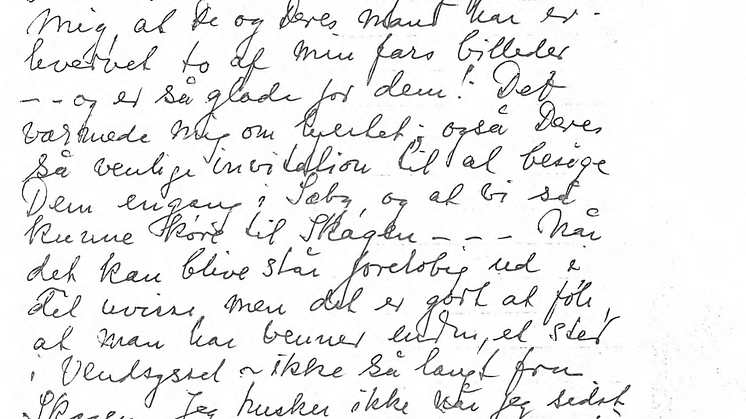 mig, at De og Deres mand har er-
hvervet to af min fars billeder
-- og er så glade for dem! Det
varmede mig om hjertet; også Deres
så venlige invitation til at besøge
Dem engang i Sæby, og at vi så
kunne køre til Skagen - - - Når
det kan blive står foreløbig ud i
det uvisse, men det er godt at føle,
at man har venner endnu, et sted
i Vendsyssel ~ ikke så langt fra
Skagen. Jeg husker ikke når jeg sidst